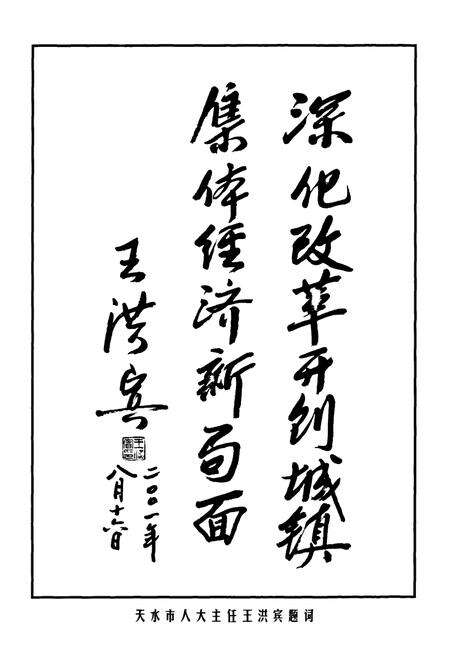 深化改革开创城镇
集体经济新局面
王洪宾
二〇〇一年
八月十六日
天水市人大主任王洪宾题词